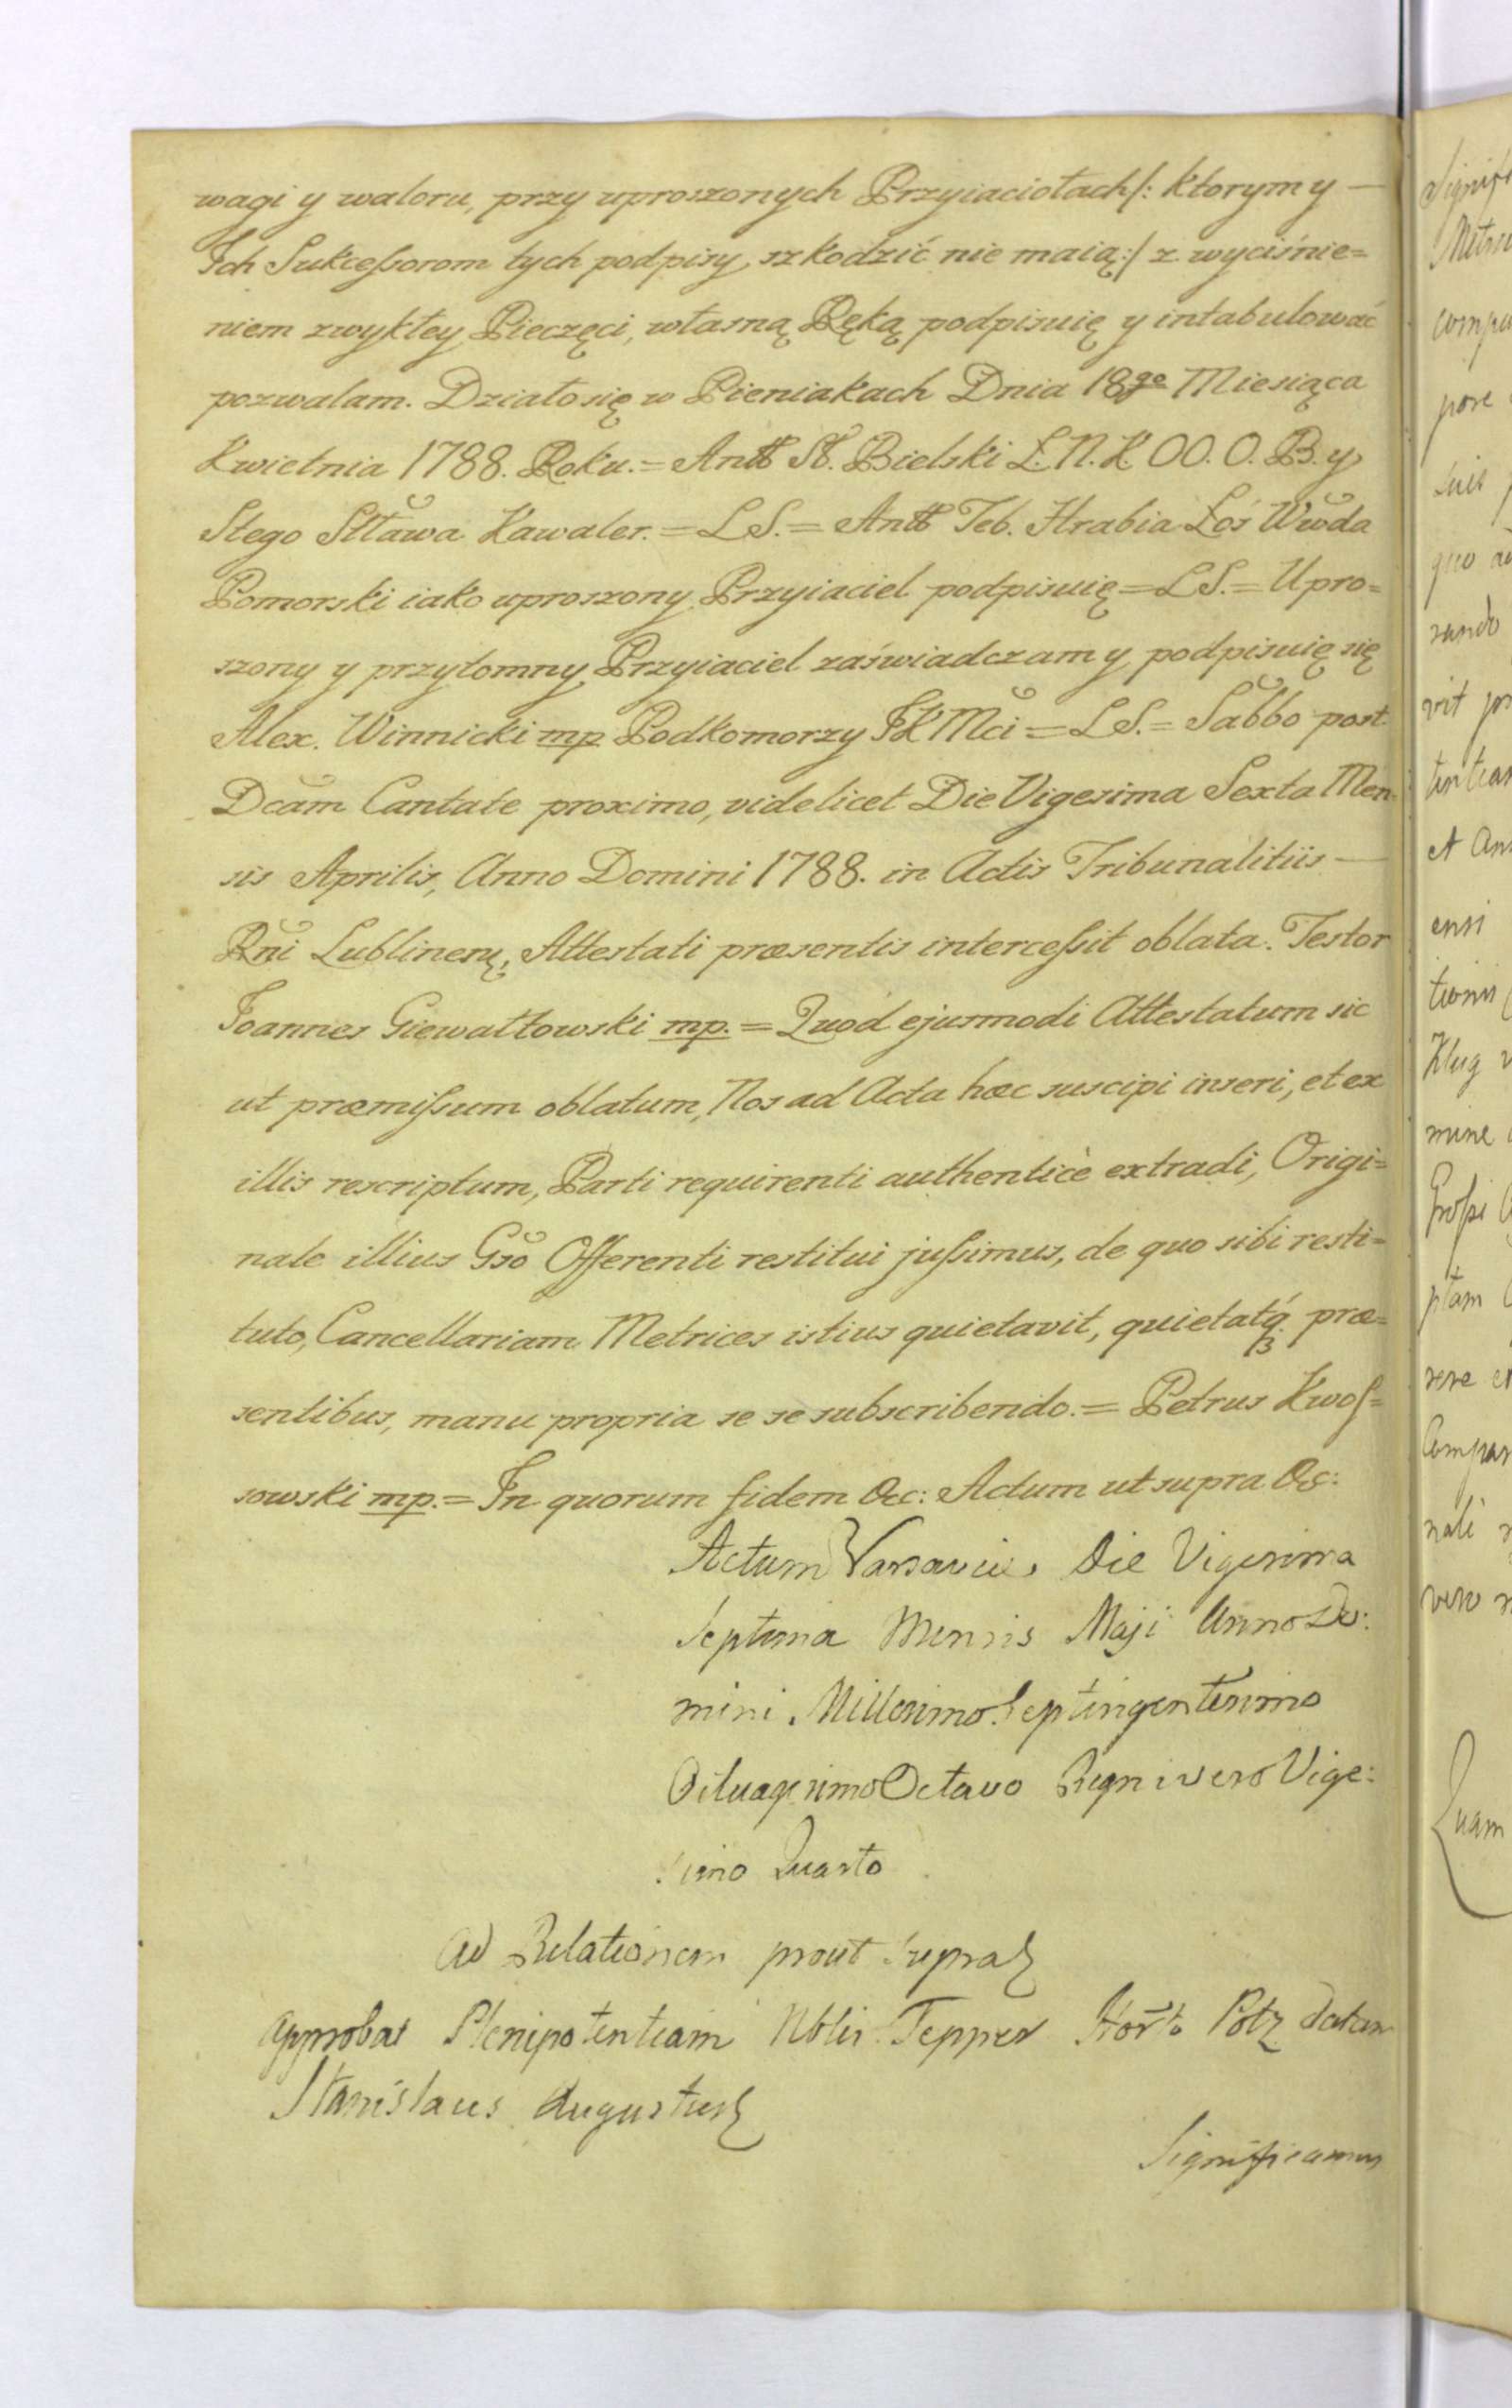 wagi y waloru, przy uproszonych Przyiaciołach /: ktorym y —
Ich Sukceßorom tych podpisy szkodzić nie maią :/ z wyciśnie=
niem zwykłey Pieczęci, własną Ręką podpisuię y intabulować
pozwalam. Działo się w Pieniakach Dnia 18go Miesiąca
Kwietnia 1788. Roku. = Antt St. Bielski Ł. N. K. OO. O. B. y
Stego Sttawa Kawaler. = LS. = Antt Teb. Hrabia Łoś Wwda
Pomorski iako uproszony Przyiaciel podpisuię = LS. = Upro=
szony y przytomny Przyiaciel zaświadczam y podpisuię się
Alex. Winnicki mp Podkomorzy JKMci = LS. = Sabbo post
Dcam Cantate proximo, videlicet Die Vigesima Sexta Men
sis Aprilis, Anno Domini 1788. in Actis Tribunalitiis —
Rni Lublinen, Attestati præsentis interceßit oblata. Testor
Joannes Giewałtowski mp. = Quod ejusmodi Attestatum sic
ut præmißum oblatum, Nos ad Acta hæc suscipi inseri, et ex
illis rescriptum, Parti requirenti authenticè extradi, Origi=
nale illius Gso Offerenti restitui jußimus, de quo sibi resti=
tuto, Cancellariam Metrices istius quietavit, quietatq præ=
sentibus, manu propria se se subscribendo. = Petrus Kwos=
sowski mp. = In quorum fidem &c: Actum ut supra &c:
Actum Varsaviæ Die Vigesima
Septima Mensis Maji Anno Do:
mini Millesimo Septingentesimo
Octuagesimo Octavo Regni vero Vige:
simo Quarto
Ad Relationem prout supra
Approbat Plenipotentiam Nblis Tepper Potz datam
Stanislaus Augustus
Significamus